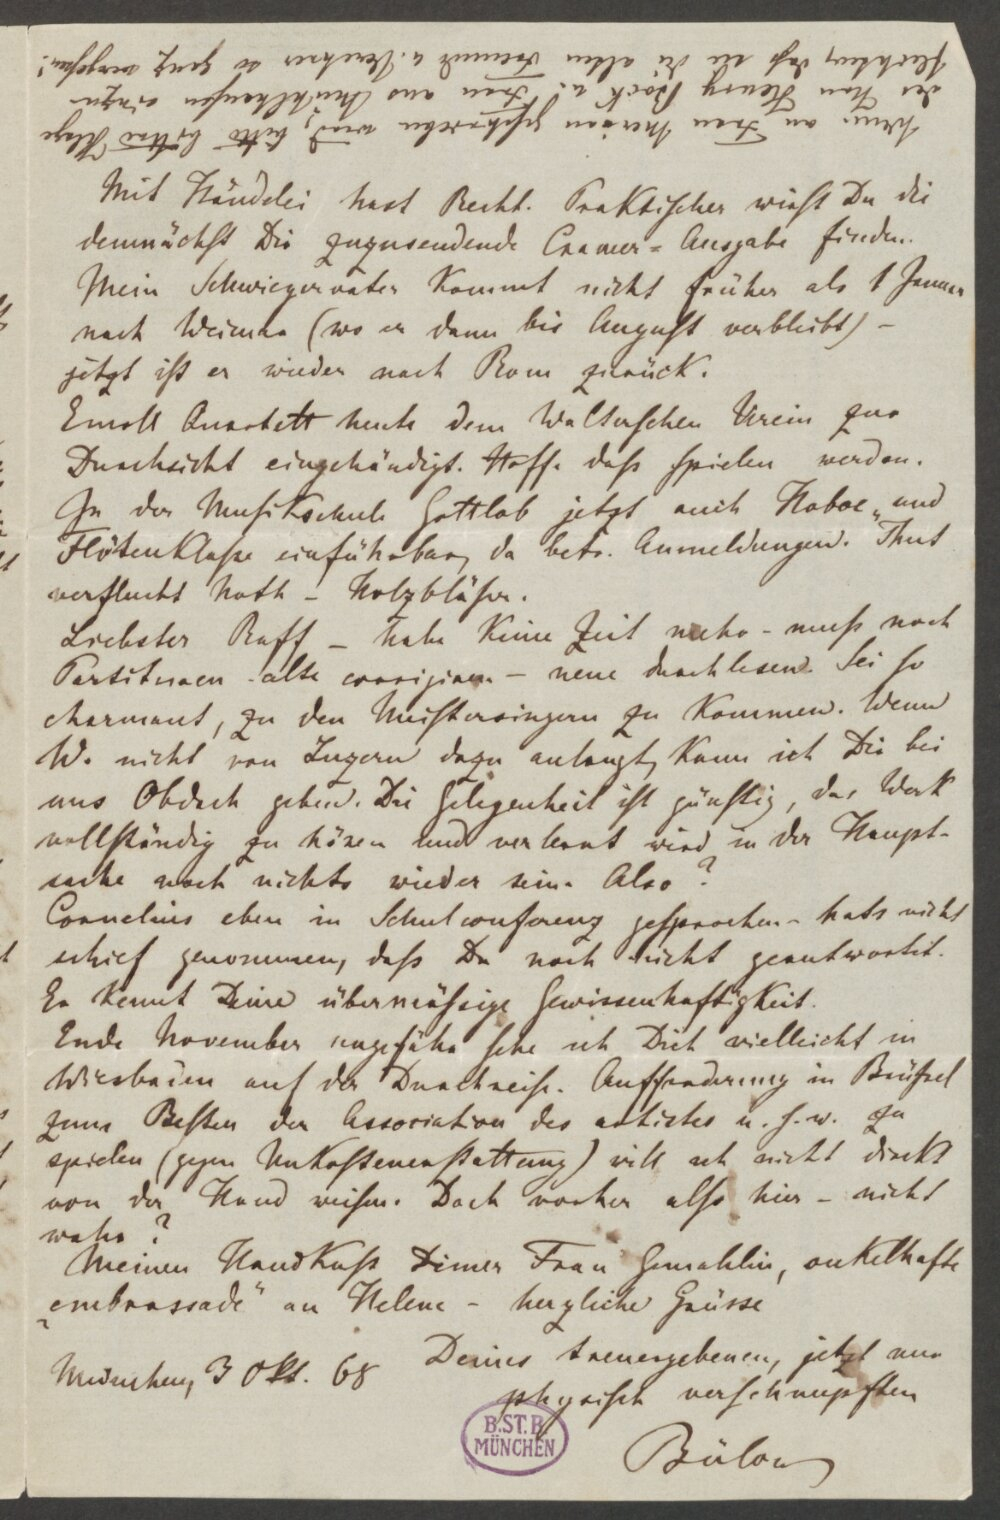 Wenn an Frau Merian geschrieben wird, bitte bittre Klage
des Hon Henry Bock u. Frau aus Mühlhausen einzu-
flechten, daß sie die alten Freunde u. Verehrer so ganz vergessen!
Mit Händelei hast Recht. Praktischer wirst Du die
demnächst Dir zuzusendende Cramer-Ausgabe finden.
Mein Schwiegervater kommt nicht früher als 1 Januar
nach Weimar (wo er dann bis August verbleibt) –
jetzt ist er wieder nach Rom zurück.
Emoll Quartett heute dem Walterschen Verein zur
Durchsicht eingehändigt. Hoffe daß spielen werden.
In der Musikschule Gottlob jetzt auch Hoboe- und
Flötenklasse einführbar, da betr. Anmeldungen. Thut
verflucht Noth – Holzbläser.
Liebster Raff – habe keine Zeit mehr – muß noch
Partituren alte corrigiren – neue durchlesen. Sei so
charmant, zu den Meistersingern zu kommen. Wenn
W. nicht von Luzern dazu anlangt, kann ich Dir bei
uns Obdach geben. Die Gelegenheit ist günstig, das Werk
vollständig zu hören und verleert wird in der Haupt-
sache noch nichts wieder sein. Also?
Cornelius eben in Schulconferenz gesprochen – hats nicht
schief genommen, daß Du noch nicht geantwortet.
Er kennt Deine übermäßige Gewissenhaftigkeit.
Ende November ungefähr sehe ich Dich vielleicht in
Wiesbaden auf der Durchreise. Aufforderung in Brüssel
zum Besten der Association des artistes u. s. w. zu
spielen (gegen Unkostenerstattung) will ich nicht direkt
von der Hand weisen. Doch vorher also hier – nicht
wahr?
Meinen Handkuß Deiner Frau Gemahlin, onkelhafte
„embrassade“ an Helene – herzliche Grüsse
Deines treuergebenen, jetzt nur
München, 3 Okt. 68
physisch verschnupften
Bülow
B.ST.B.
MÜNCHEN